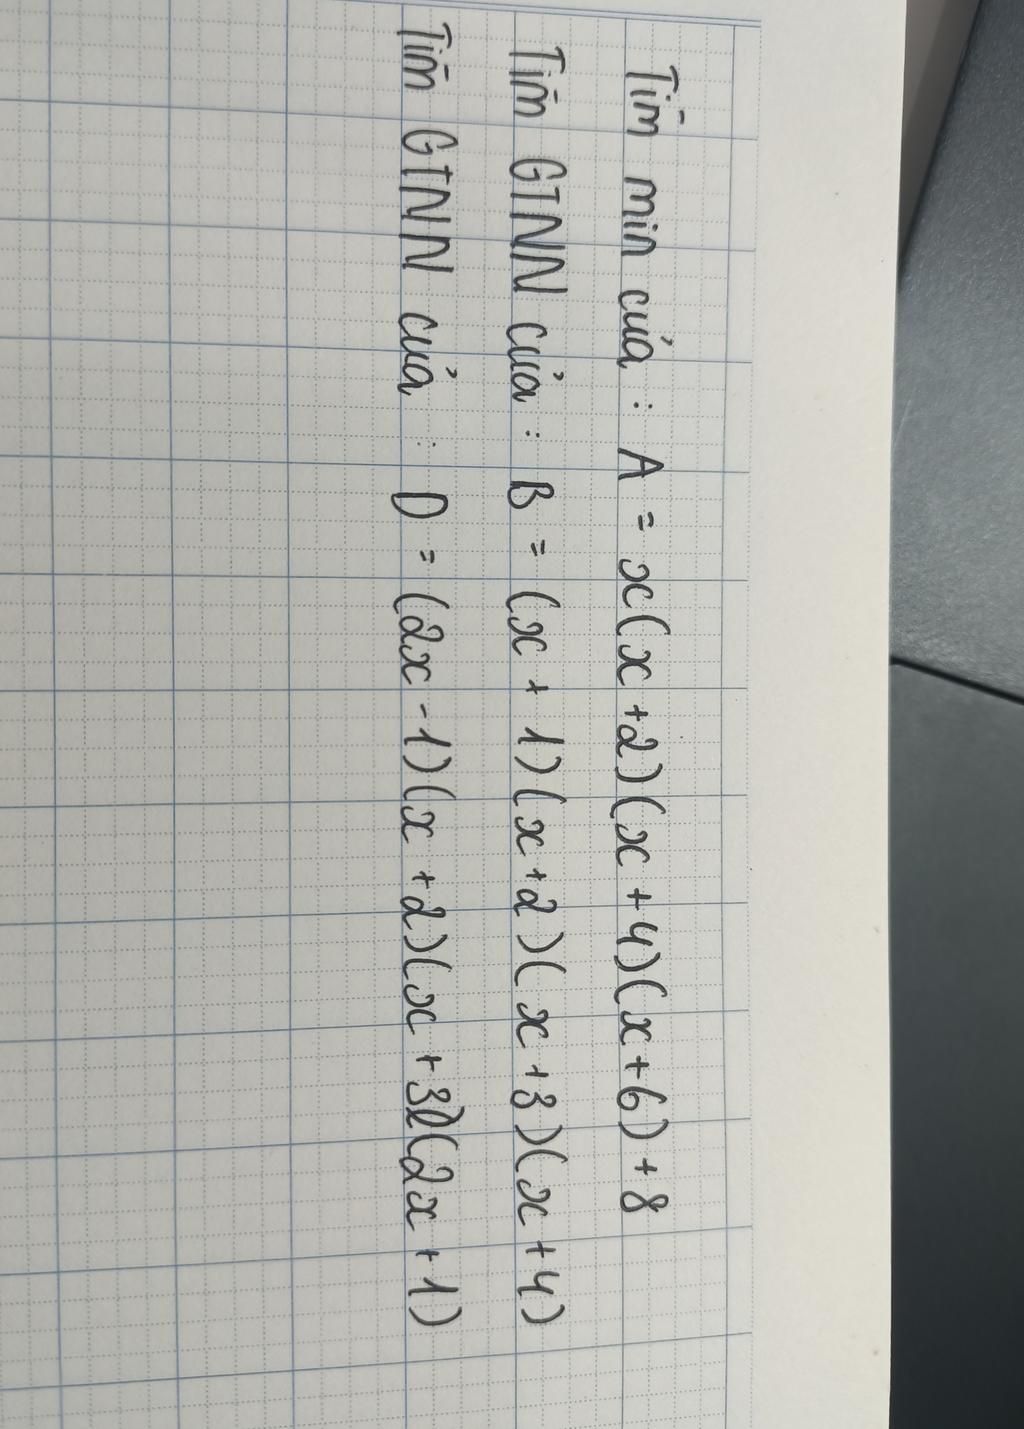 Tìm min của : A = x(x+2)(x+4)(x+6)+8
Tìm GTNN của : B = (x+1)(x+2)(x+3)(x+4)
Tìm GTNN của : D = (2x-1)(x+2)(x+3)(2x+1)